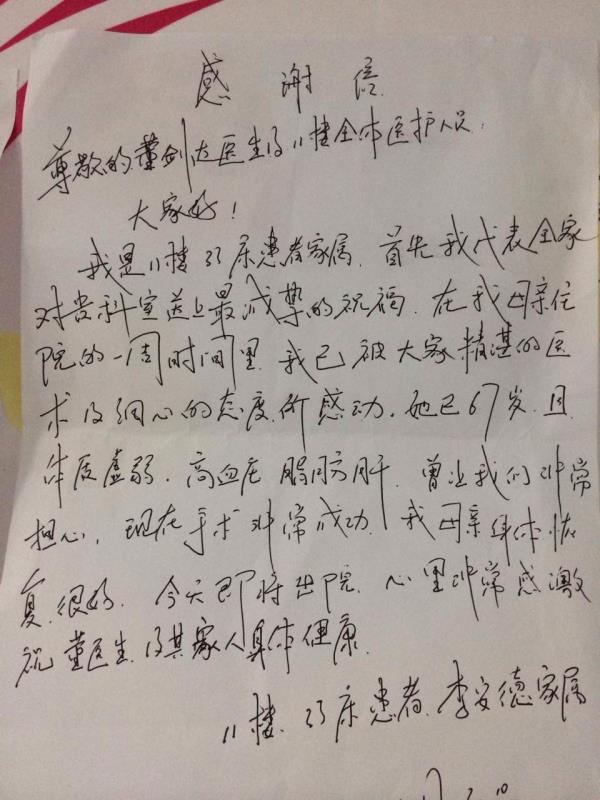 感谢信
尊敬的董剑达医生及11楼全体医护人员:
大家好!
我是11楼33床患者家属.首先我代表全家
对贵科室送上最诚挚的祝福.在我母亲住
院的一周时间里.我已被大家精湛的医
术及细心的态度所感动.她已67岁.且
体质虚弱.高血压 脂肪肝.曾让我们非常
担心,现在手术非常成功.我母亲身体恢
复很好.今天即将出院.心里非常感激
祝董医生及其家人身体健康.
11楼.33床患者.李安德家属